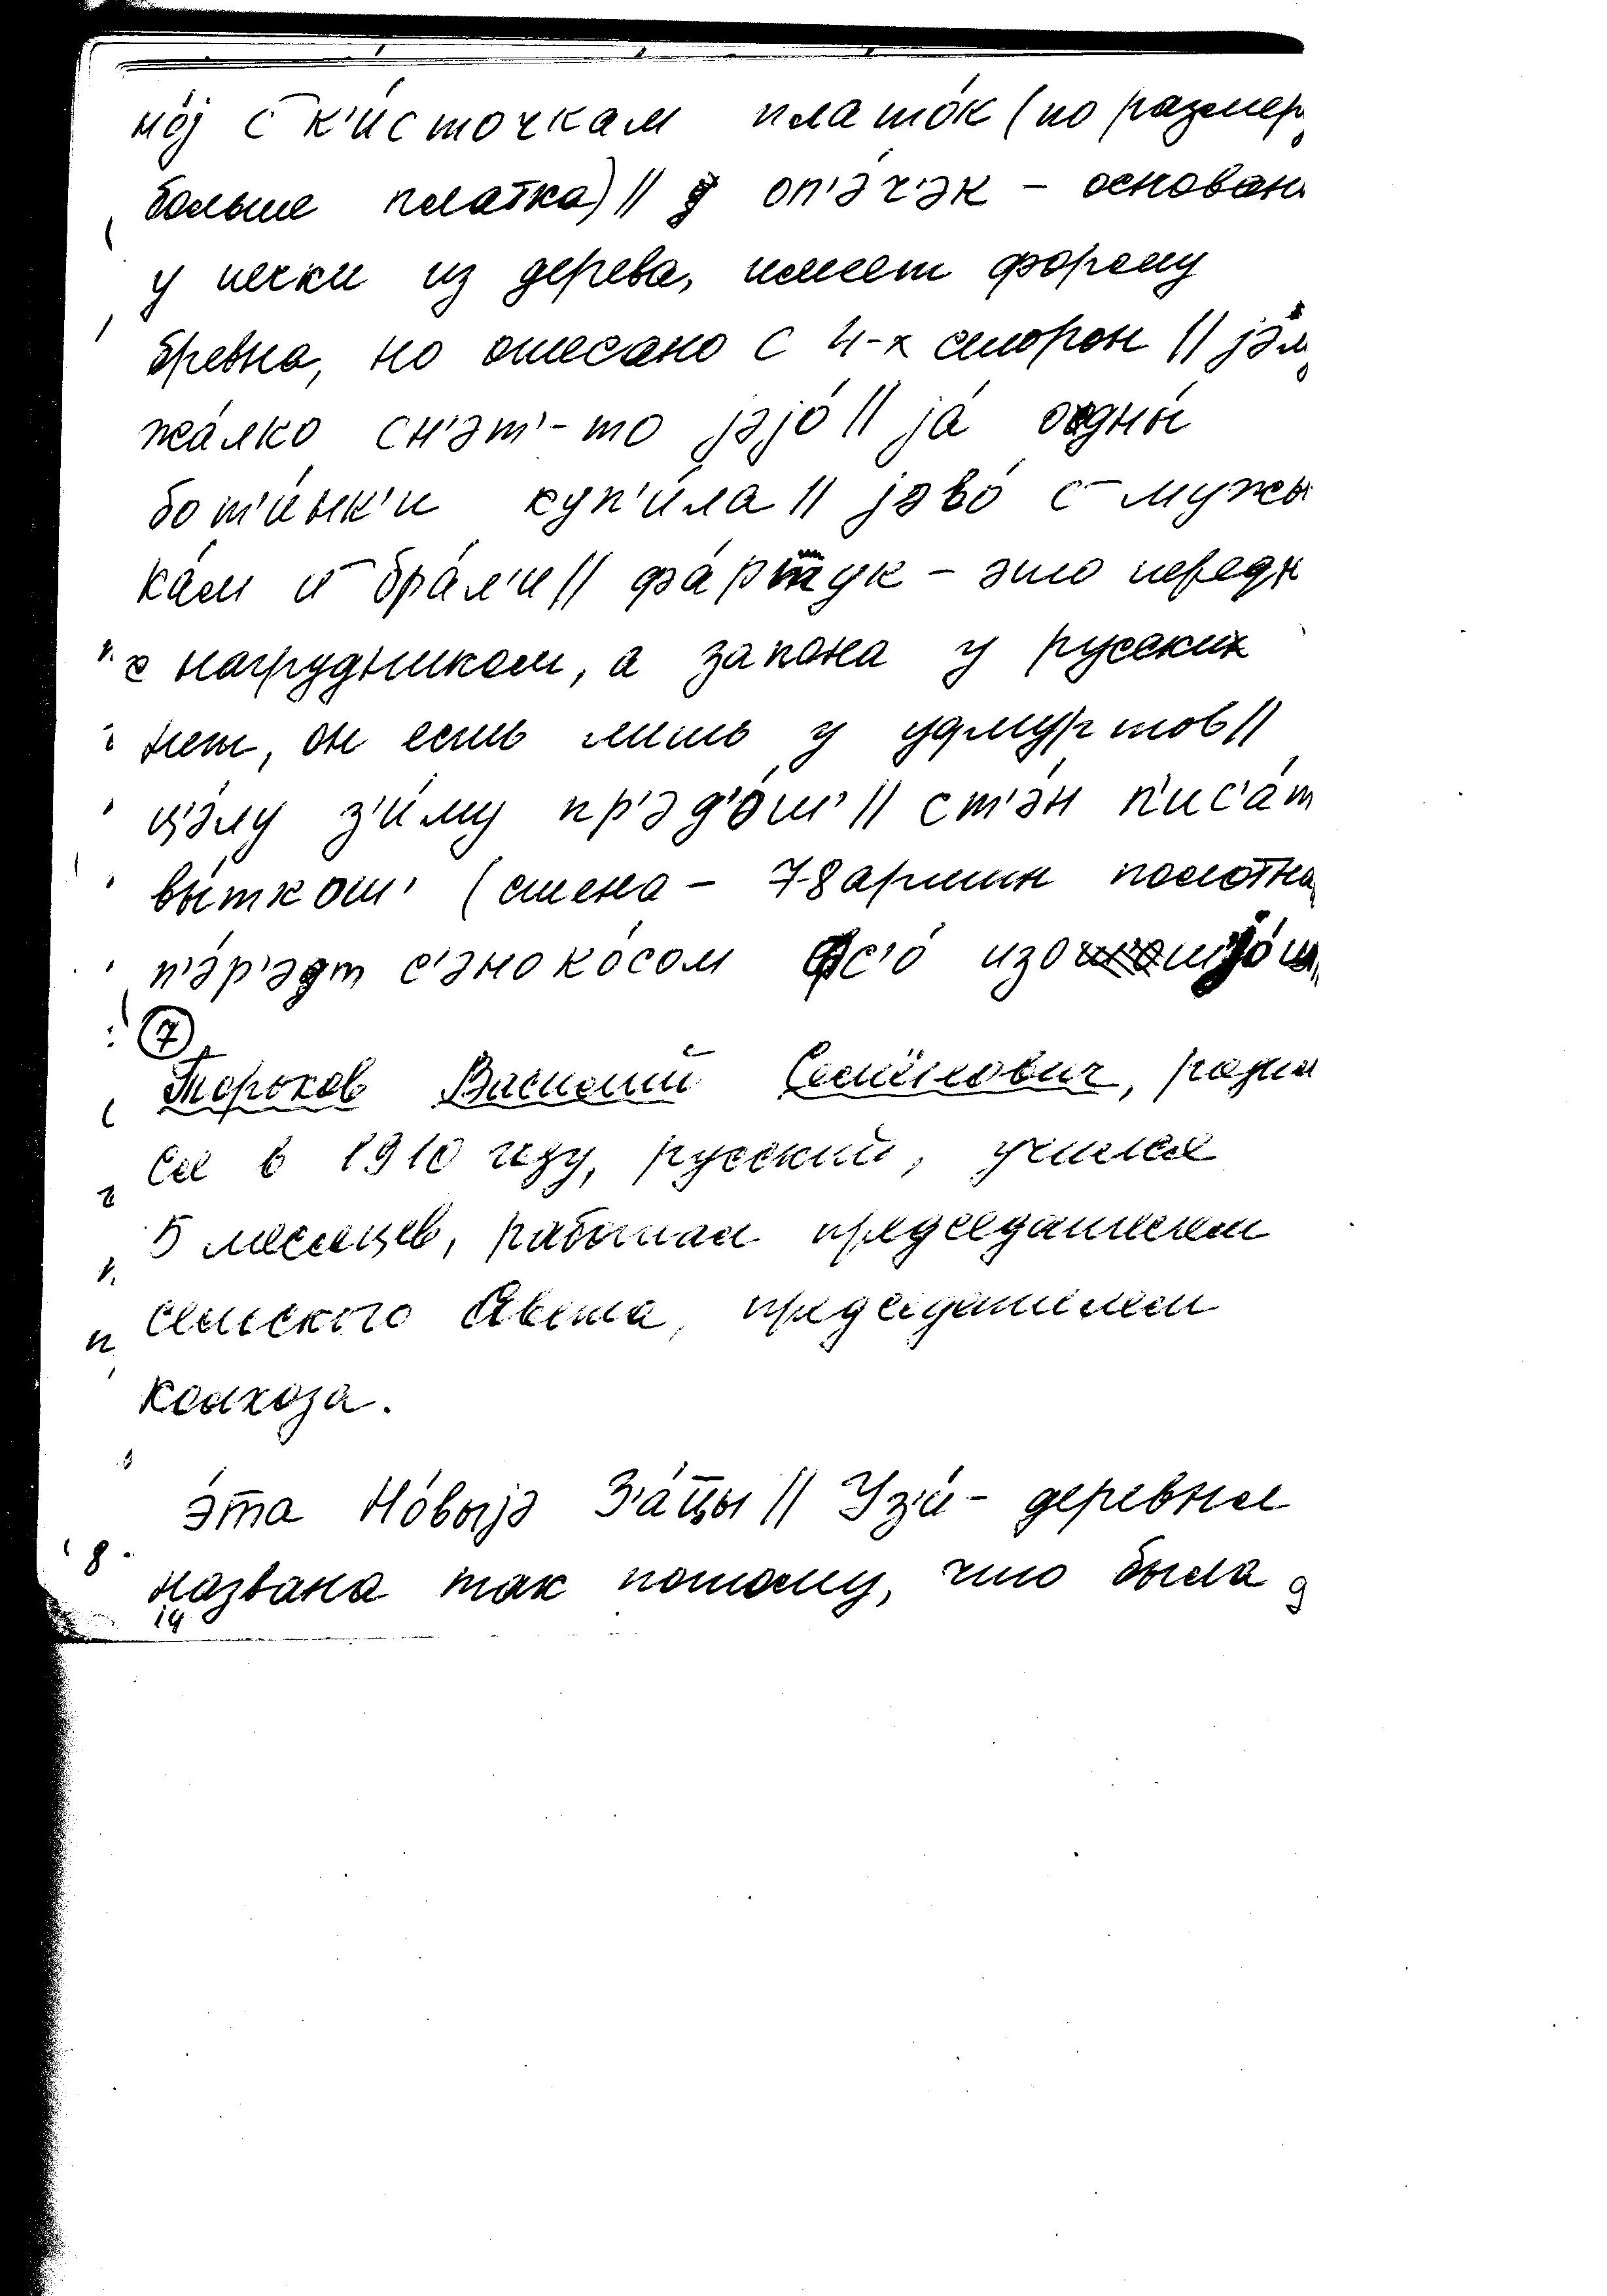 но́j с к'и́сточкам платóк (по размер
больше платка) // оп'э́ч'эк – основан
у печки из дерева, имеет форму
бревна, но отесано с 4-х сторон // jэм
жа́лко сн'эт'-то jэjó // já одны́
бот'и́нк'и куп'и́ла // jэвó с мужы
ка́м и брáл'и // фáртук – это передн
с нагрудником, а запона у русских
нет, он есть лишь у удмуртов //
ц'э́лу з'и́му пр'эд'óш' // ст'э́н п'ис'áт
вы́ткош' (стена – 7-8 аршин полотна
п'э́р'эдт с'энокóсом фс'ó изошjóш
⑦
Терехов Василий Семёнович, родил
ся в 1910 году, русский, учился
5 месяцев, работал председателем
сельского Совета, председателем
колхоза.
э́та Нóвыjэ З'áтцы // Узи́ – деревня
названа так потому, что была